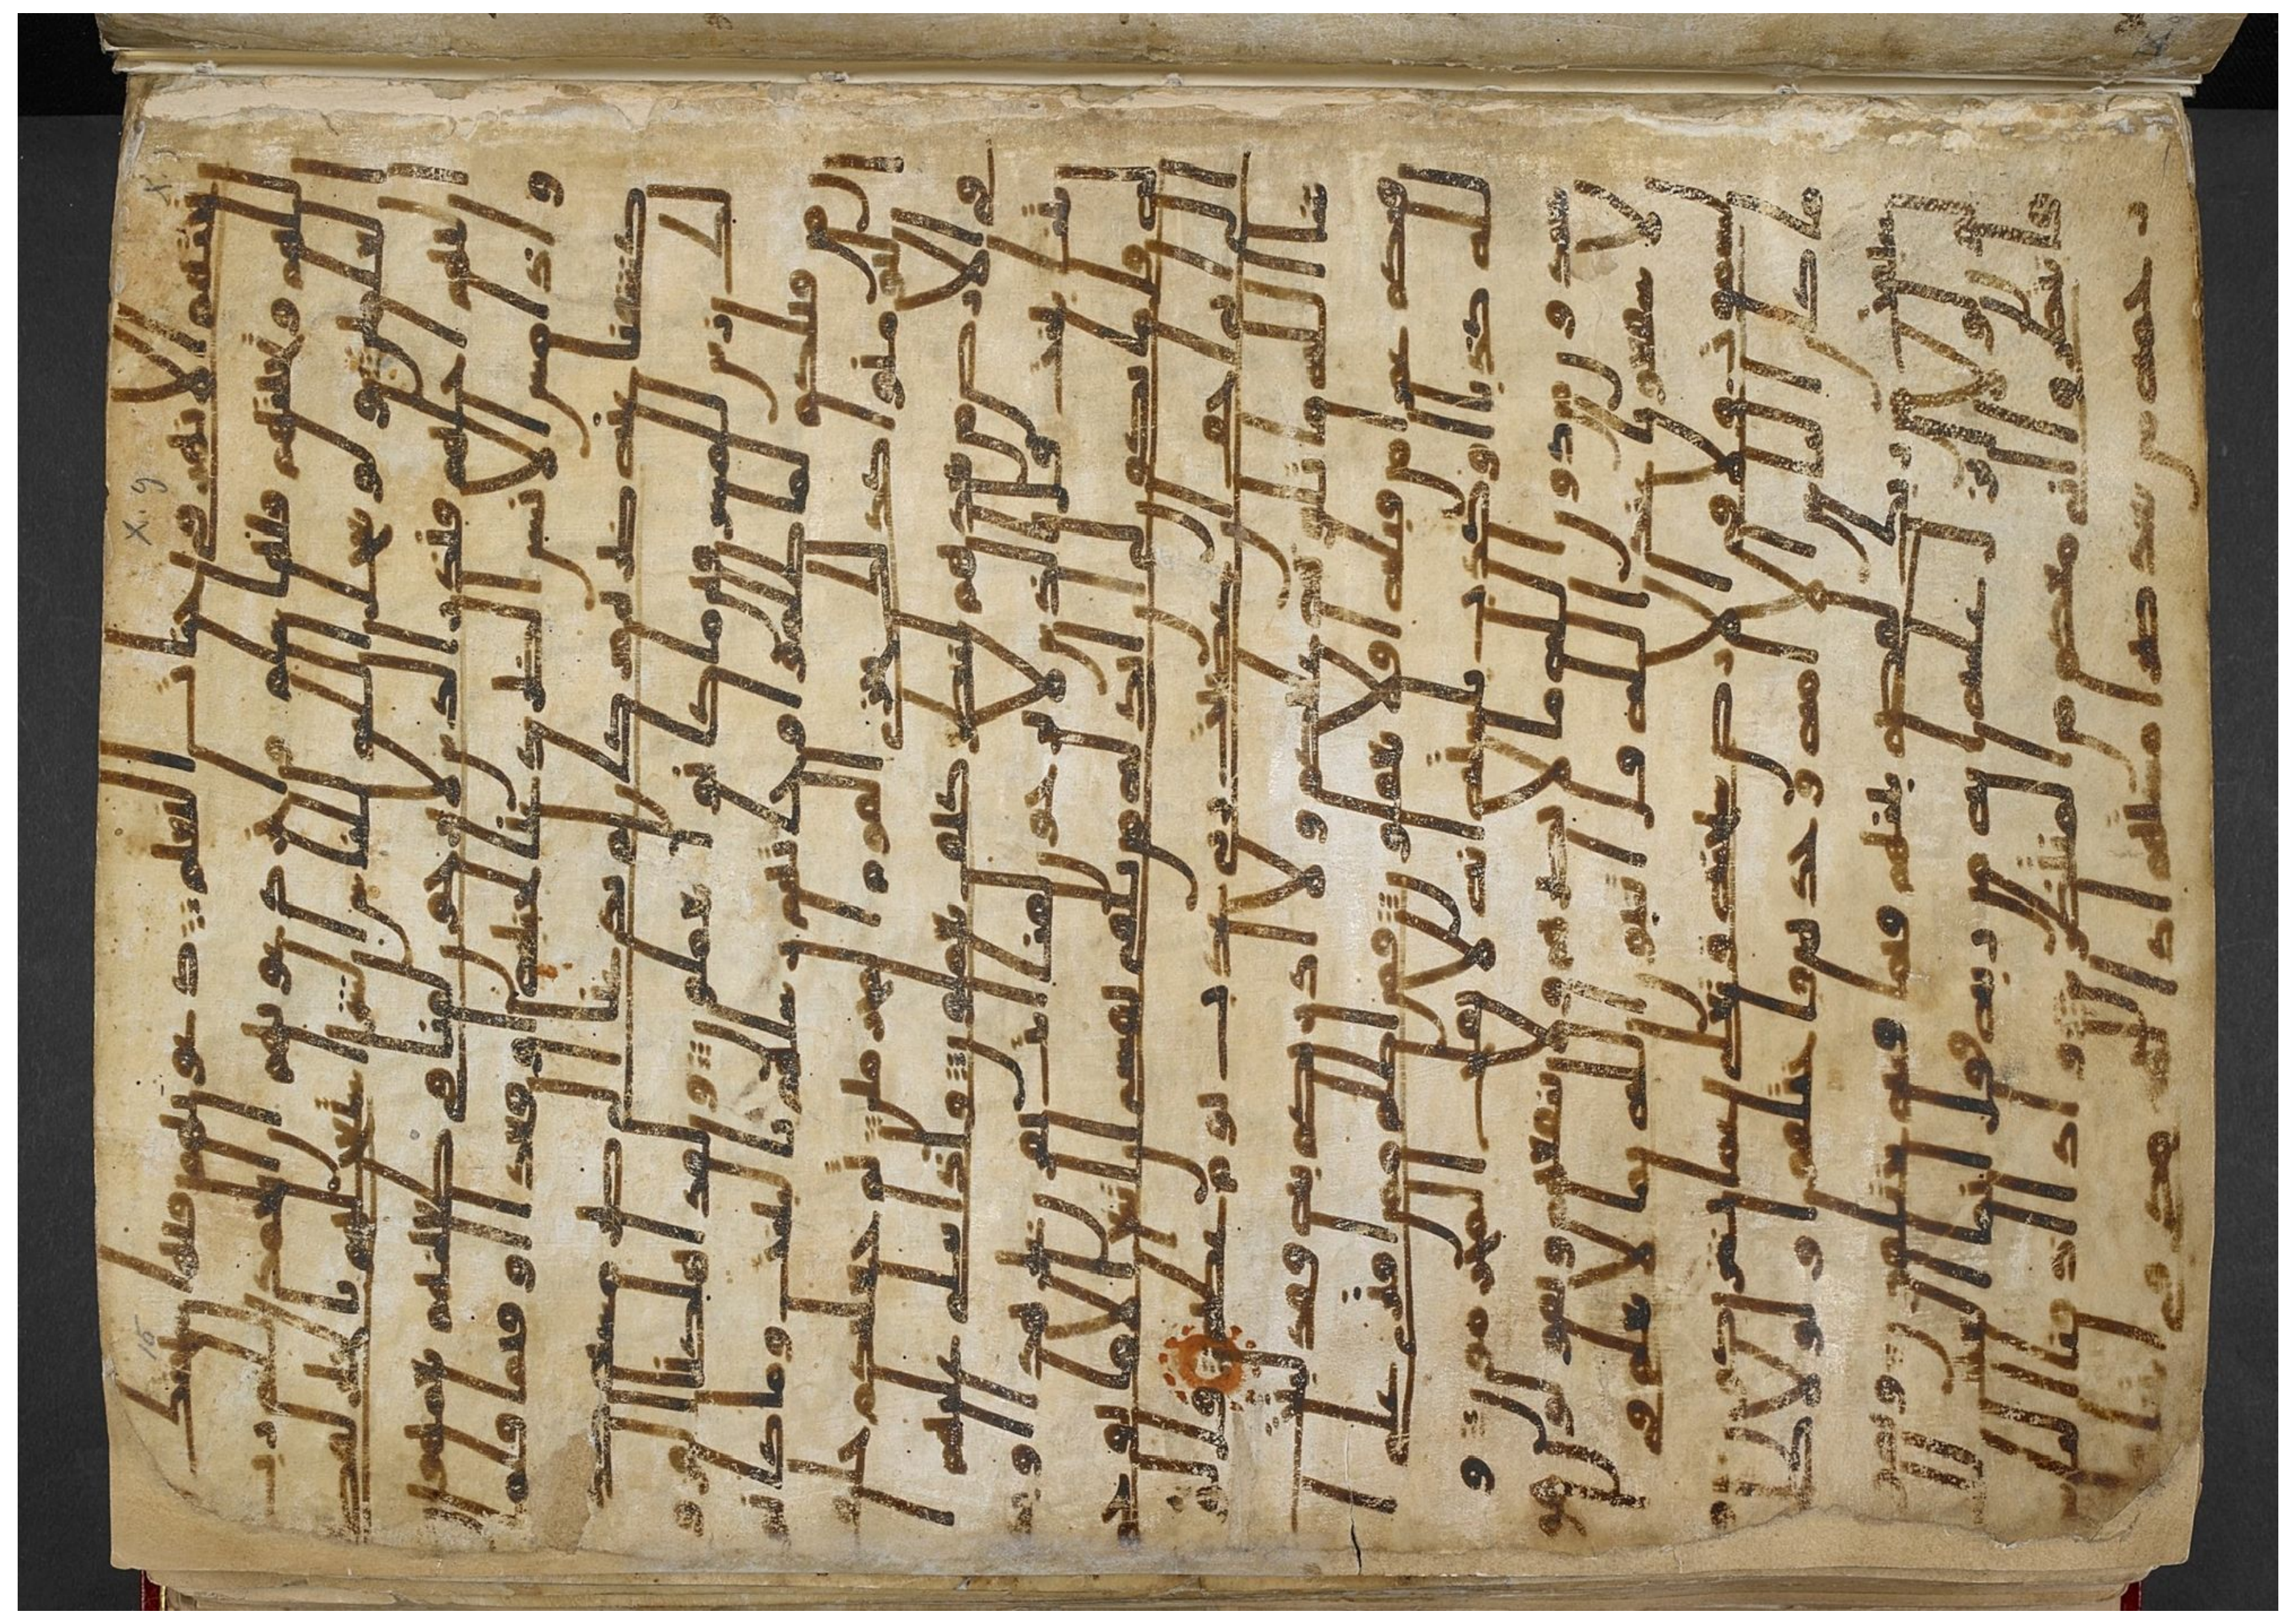 تحتهم الانهر في جنت النعيم دعويهم فيها سبحنك
اللهم وتحيتهم فيها سلم واخر دعويهم ان الحمد لله رب
العلمين ولو يعجل الله للناس الشر استعجلهم بالخير لقضى
اليهم اجلهم فنذر الذين لا يرجون لقانا في طغينهم يعمهون
واذا مس الانسن الضر دعنا لجنبه او قعدا او قىما فلما
كشفنا عنه ضره مر كان لم يدعنا الى ضر مسه
كذلك زين للمسرفين ما كنوا يعملون ولقد اهلكنا القرون
من قبلكم لما ظلموا وجاتهم رسلهم بالبينت وما كانوا
ليومنوا كذلك نجزي القوم المجرمين ثم جعلنكم خلىف
في الارض من بعدهم لننظر كيف تعملون واذا تتلى عليهم ا
يتنا بينت قل الذين لا يرجون لقانا ات بقرن غير هذا او
بدله قل ما يكون لي ان ابدله من تلقاي نفسي ان اتبع الا ما يوحى
الي اني اخاف ان عصيت ربي عذب يوم عظيم قل لو
شا الله ما تلوته عليكم ولا ادريكم به فقد لبثت
فيكم عمرا من قبله افلا تعقلون فمن اظلم ممن افترى على
الله كذبا او كذب بايته انه لا يفلح المجرمون و
يعبدون من دون الله ما لا يضرهم ولا ينفعهم ويقولون هو
لا شفعونا عند الله قل اتنبون الله بما لا يعلم في
السموت ولا في الارض سبحنه وتعلى عما يشركون و
ما كان الناس الا امة وحدة فاختلفوا ولولا كلمة
سبقت من ربك لقضي بينهم فيما فيه يختلفون ويقولون
لولا انزل عليه اية من ربه فقل انما الغيب لله
فانتظروا اني معكم من المنتظرين واذا اذقنا الناس
رحمة من بعد ضرا مستهم اذا لهم مكر في